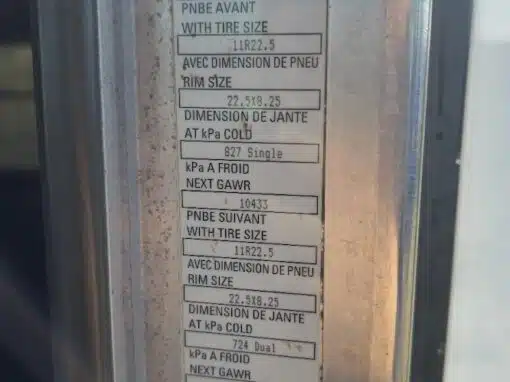 PNBE AVANT
WITH TIRE SIZE
11R22.5
AVEC DIMENSION DE PNEU
RIM SIZE
22.5X8.25
DIMENSION DE JANTE
AT kPa COLD
827 Single
kPa A FROID
NEXT GAWR
10433
PNBE SUIVANT
WITH TIRE SIZE
11R22.5
AVEC DIMENSION DE PNEU
RIM SIZE
22.5X8.25
DIMENSION DE JANTE
AT kPa COLD
724 Dual
kPa A FROID
NEXT GAWR